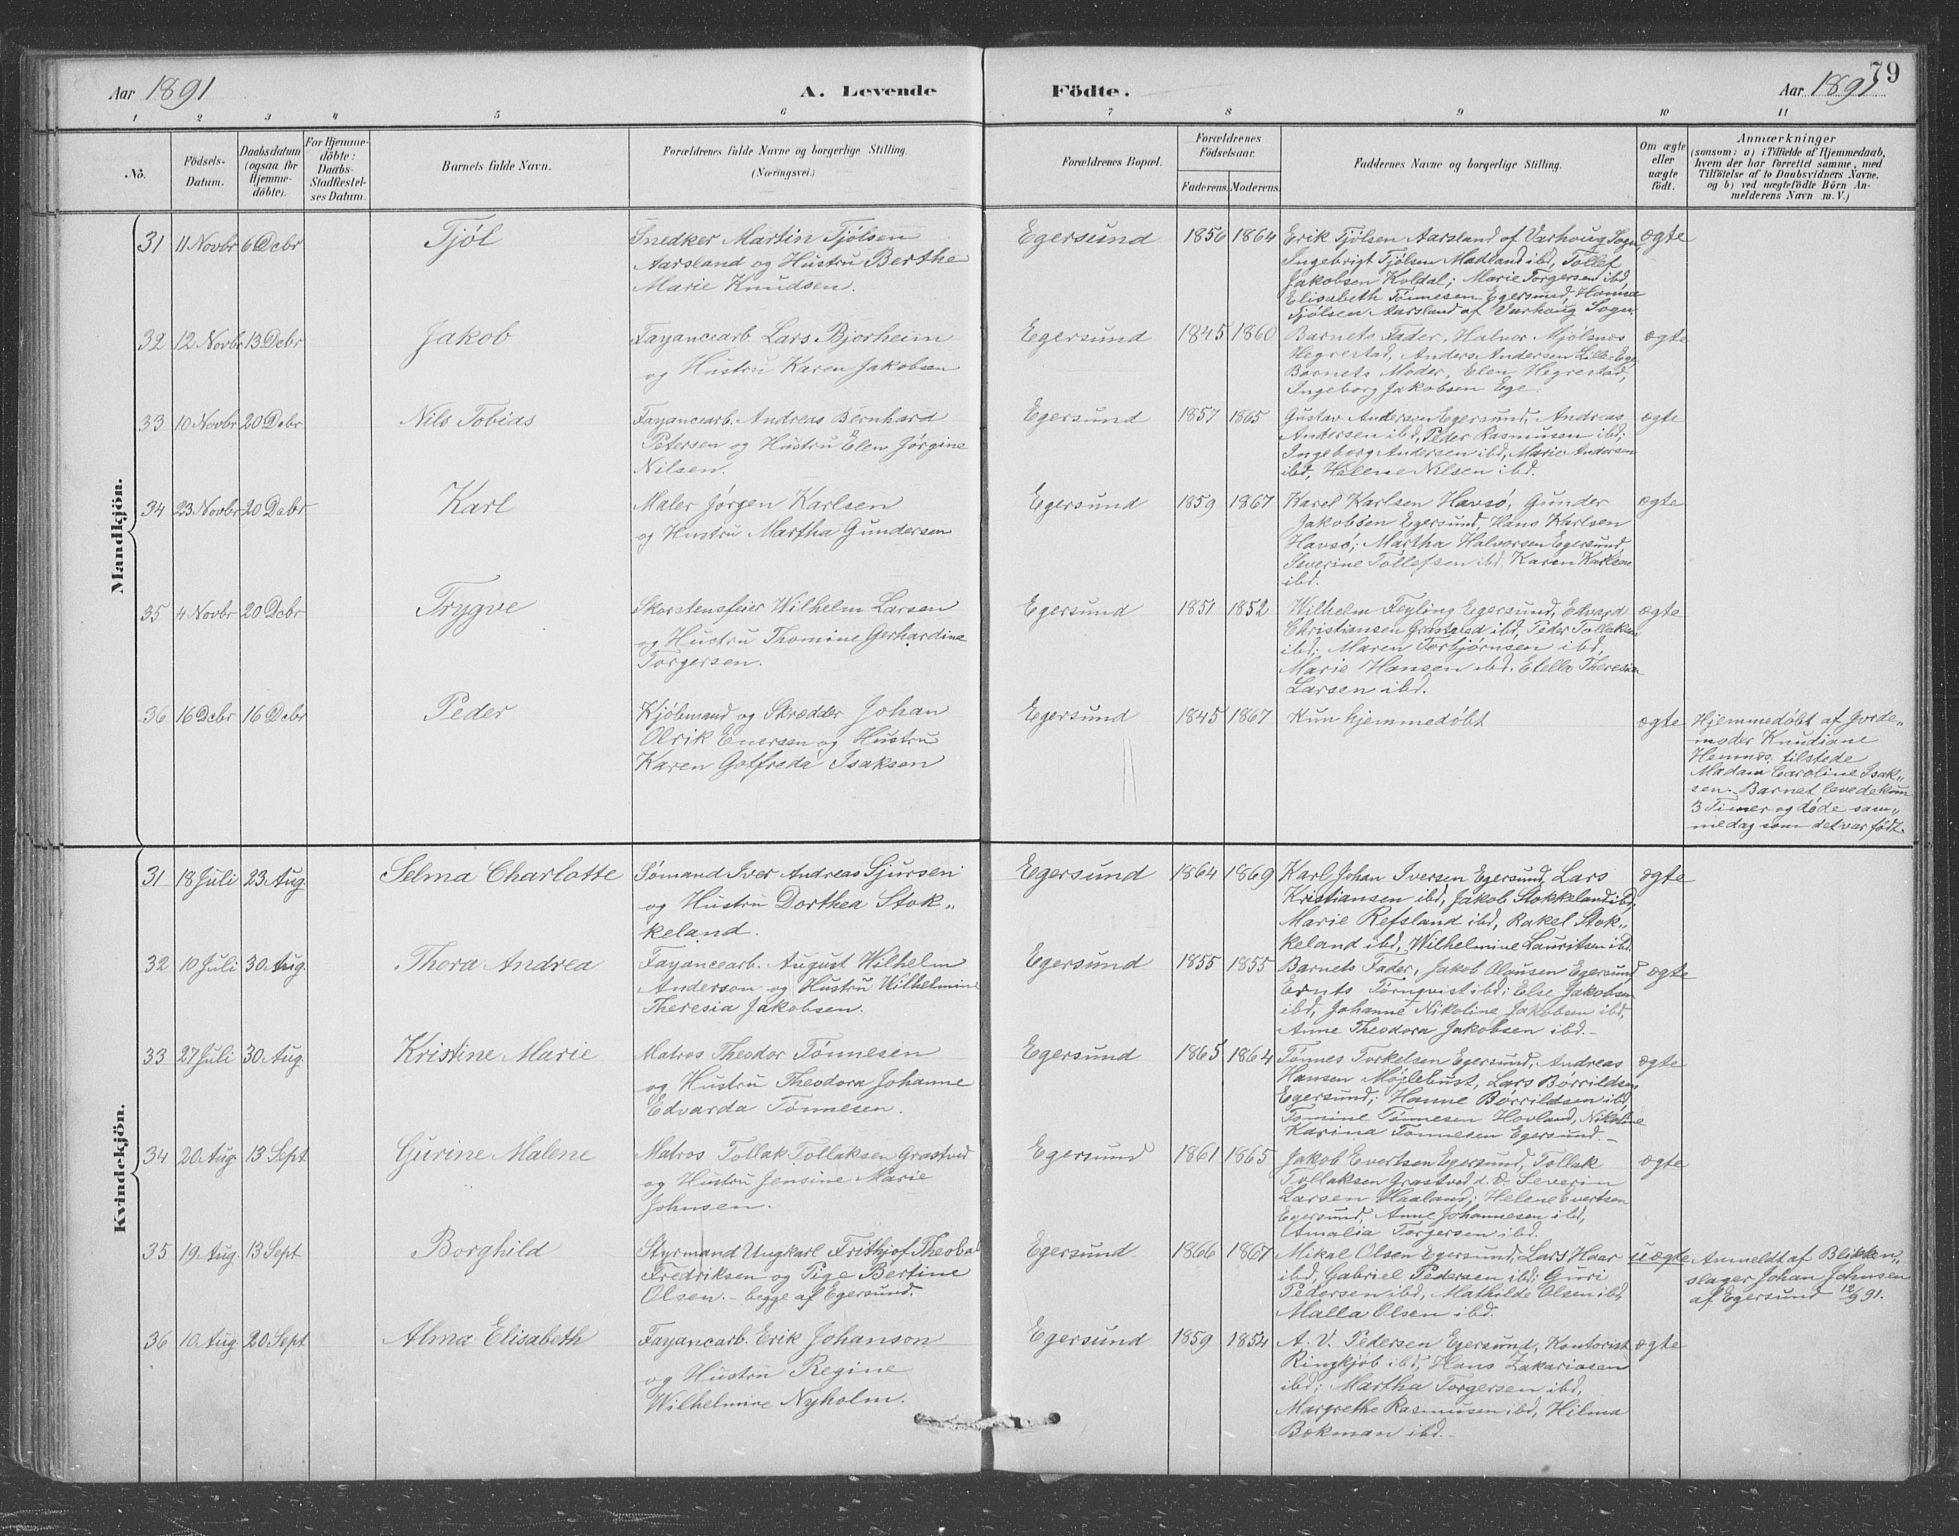 79
Aar 1891
A. Levende
Födte.
Aar 1891
1 2 3 4 5 6 7 8 9 10 11
No.
Födsels-
Datum.
Daabsdatum
(ogsaa for
Hjemme-
döbte).
For Hjemme-
döbte:
Daabs-
Stadfæstel-
ses Datum.
Barnets fulde Navn.
Forældrenes fulde Navne og borgerlige Stilling.
(Næringsvei.)
Forældrenes Bopæl.
Forældrenes
Födselsaar.
Faderens. Moderens.
Faddernes Navne og borgerlige Stilling.
Om ægte
eller
uægte
födt.
Anmærkninger
(saasom: a) i Tilfælde af Hjemmedaab,
hvem der har forrettet samme, med
Tilföielse af to Daabsvidners Navne,
og b) ved uægtefödte Börn An-
melderens Navn m. V.)
Mandkjön.
31 11 Novbr 6 Debr Tjøl
Snedker Martin Tjølsen
Aarsland og Hustru Berthe
Marie Knudsen.
Egersund 1856 1864
Erik Tjølsen Aarsland af Varhoug Sogn,
Ingebrigt Tjølsen Madland ibd, Tollef
Jakobsen Koldal; Marie Torgersen ibd,
Elisabeth Tönnesen Egersund, Hanna
Tjølsen Aarsland af Varhoug Sogn
ægte
32 12 Novbr 13 Debr Jakob
Fayancearb. Lars Bjorheim
og Hustru Karen Jakobsen
Egersund 1845 1860
Barnets Fader, Halvor Mjølsnes
Hegrestad, Anders Andersen Lille Ege
Barnets Moder, Elen Hegrestad,
Ingeborg Jakobsen Ege.
ægte
33 10 Novbr 20 Debr Nils Tobias
Fayancearb. Andreas Bernhard
Petersen og Hustru Elen Jørgine
Nilsen.
Egersund 1857 1865
Gustav Andersen Egersund, Andreas
Andersen ibd, Peder Rasmusen ibd;
Ingeborg Andersen ibd, Marie Andersen
ibd, Helene Nilsen ibd.
ægte
34 23 Novbr 20 Debr Karl
Maler Jørgen Karlsen
og Hustru Martha Gundersen
Egersund 1859 1867
Karel Karlsen Havsö, Gunder
Jakobsen Egersund, Hans Karlsen
Havsö; Martha Halvorsen Egersund
Severine Tollefsen ibd, Karen Karlsen
ibd.
ægte
35 4 Novbr 20 Debr Trygve
Skorstensfeier Wilhelm Larsen
og Hustru Thomine Gerhardine
Torgersen.
Egersund 1851 1852
Wilhelm Feyling Egersund, Edvard
Christiansen Grastved ibd, Peder Tollaksen
ibd; Maren Torbjørnsen ibd,
Marie Hansen ibd. Etella Theresia
Larsen ibd.
ægte
36 16 Debr 16 Debr Peder
Kjöbmand og Skrædder Johan
Olrik Enersen og Hustru
Karen Gotfreda Isaksen
Egersund 1845 1867
Kun hjemmedøbt
ægte
Hjemmedöbt af Jorde„
moder Knudiane
Hemnes. tilstede
Madam Caroline Isak„
sen. Barnet levede kun
3 Timer og døde sam„
me dag som det var født.
Kvindekjön.
31 18 Juli 23 Aug. Selma Charlotte
Sømand Iver Andreas Sjursen
og Hustru Dorthea Stok„
keland.
Egersund 1864 1869
Karl Johan Iversen Egersund, Lars
Kristiansen ibd, Jakob Stokkeland ibd,
Marie Refsland ibd, Rakel Stok„
keland ibd, Wilhelmine Lauritsen ibd.
ægte
32 10 Juli 30 Aug. Thora Andrea
Fayancearb. August Wilhelm
Anderson og Hustru Wilhelmine
Theresia Jakobsen.
Egersund 1855 1855
Barnets Fader, Jakob Olausen Egersund
Ernts Törnqvist ibd; Else Jakobsen
ibd, Johanne Nikoline Jakobsen ibd,
Anne Theodora Jakobsen ibd.–
ægte
33 27 Juli 30 Aug. Kristine Marie
Matros Theodor Tønnesen
og Hustru Theodora Johanne
Edvarda Tønnesen.
Egersund 1865 1864
Tønnes Torkelsen Egersund, Andreas
Hansen Møjlebust, Lars Borrildsen
Egersund; Hanne Borrildsen ibd,
Tomine Tønnesen Hovland, Nikoline
Karina Tønnesen Egersund.–
ægte
34 20 Aug 13 Sept Gurine Malene
Matros Tollak Tollaksen Grastved
og Hustru Jensine Marie
Johnsen.
Egersund 1861 1865
Jakob Evertsen Egersund, Tollak
Tollaksen Grastved d. æ. Severin
Larsen Haaland; Helene Evertsen
Egersund, Anne Johannesen ibd,
Amalia Torgersen ibd.
ægte
35 19 Aug. 13 Sept Borghild
Styrmand Ungkarl Frithjof Theobal
Fredriksen og Pige Bertine
Olsen. – begge af Egersund.
Egersund. 1866 1867
Mikal Olsen Egersund, Lars Haar
ibd, Gabriel Pedersen ibd; Guri
Pedersen ibd, Mathilde Olsen ibd,
Malla Olsen ibd.
uægte
Anmeldt af Blikken„
slager Johan Johnsen
af Egersund 12/9 91.
36 10 Aug 20 Sept Alma Elisabeth
Fayancarb. Erik Johanson
og Hustru Regine
Wilhelmine Nyholm.
Egersund 1859 1854
A. V. Pedersen Egersund, Kontorist
Ringkjøb ibd, Hans Zakariasen
ibd; Martha Torgersen ibd,
Margrethe Rasmusen ibd, Hilma
Bokman ibd.–
ægte